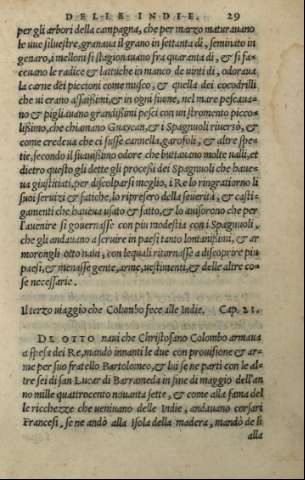 DELLE INDIE. 29
per gli arbori della campagna, che per marzo maturauano
le uue siluestre, granaua il grano in settanta dì, seminato in
genaro, i melloni si stagionauano fra quaranta dì, & si fa-
ceuano le radice & lattuche in manco de uinti dì, odoraua
la carne dei piccioni come musco, & quella dei cocodrilli
che ui erano assaissimi, & in ogni fiume, nel mare pescaua-
no & pigliauano grandissimi pesci con un stromento piccio-
lissimo, che chiamano Guaycan, & i Spagnuoli riuerso, &
come credeua che ci fusse cannella, garofoli, & altre spe-
tie, secondo il suauissimo odore che buttauano molte ualli, et
dietro questo gli dette gli processi dei Spagnuoli che haue-
ua giustitiati, per discolparsi meglio, i Re lo ringratiorno li
suoi seruizi & fatiche, lo ripresero della seuerità, & casti-
gamenti che haueua usato & fatto, & lo auisorono che per
l'auenire si gouernasse con piu modestia con i Spagnuoli,
che gli andauano a seruire in paesi tanto lontanissimi, & ar
morongli otto naui, con lequali ritornasse a discoprire piu
paesi, & menasse gente, arme, uestimenti, & delle altre co-
se necessarie.
Il terzo uiaggio che Colombo fece alle Indie. Cap. 21.
DE OTTO naui che Christofano Colombo armaua
a spesa dei Re, mandò innanti le due con prouisione & ar-
me per suo fratello Bartolomeo, & lui se ne partì con le al-
tre sei di san Lucar di Barrameda in fine di maggio dell'an
no mille quattrocento nouanta sette, & come alla fama del
le ricchezze che ueniuano delle Indie, andauano corsari
Francesi, se ne andò alla Isola della madera, mandò de li
alla